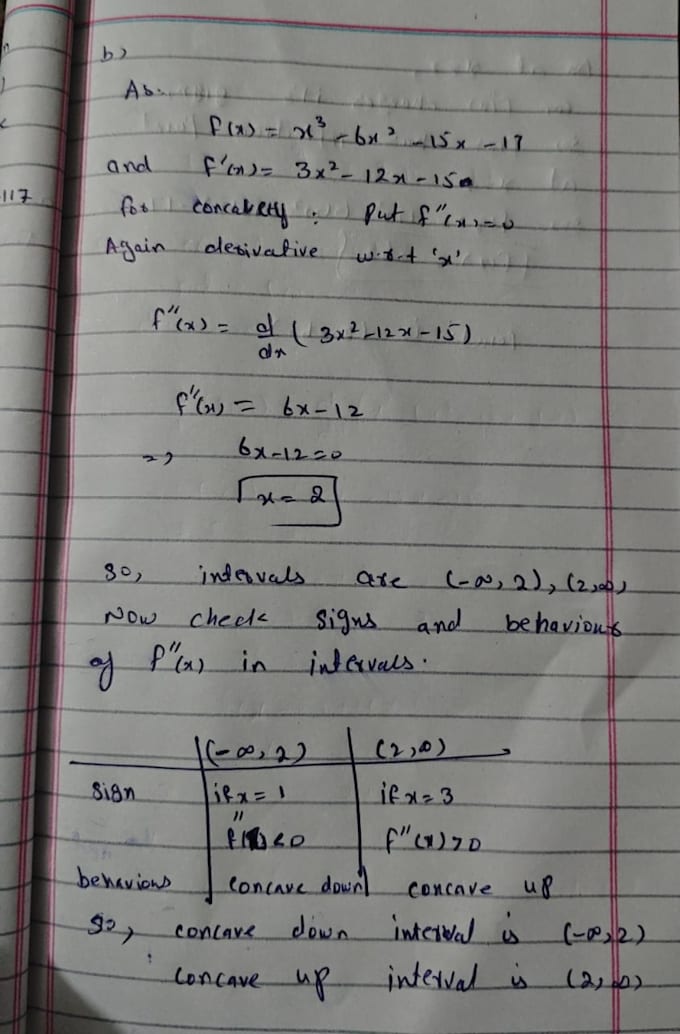 b)
As
f(x) = x³ - 6x² - 15x - 17
and f'(x) = 3x² - 12x - 15
117
for concavety : Put f''(x) = 0
Again derivative w.r.t 'x'
f''(x) = d/dx ( 3x² - 12x - 15 )
f''(x) = 6x - 12
=> 6x - 12 = 0
x = 2
so, intervals are (-∞, 2), (2, ∞)
Now check signs and behaviours
of f''(x) in intervals.
(-∞, 2) (2, ∞)
sign if x = 1 if x = 3
f'' < 0 f''(x) > 0
behavious concave down concave up
so, concave down interval is (-∞, 2)
concave up interval is (2, ∞)